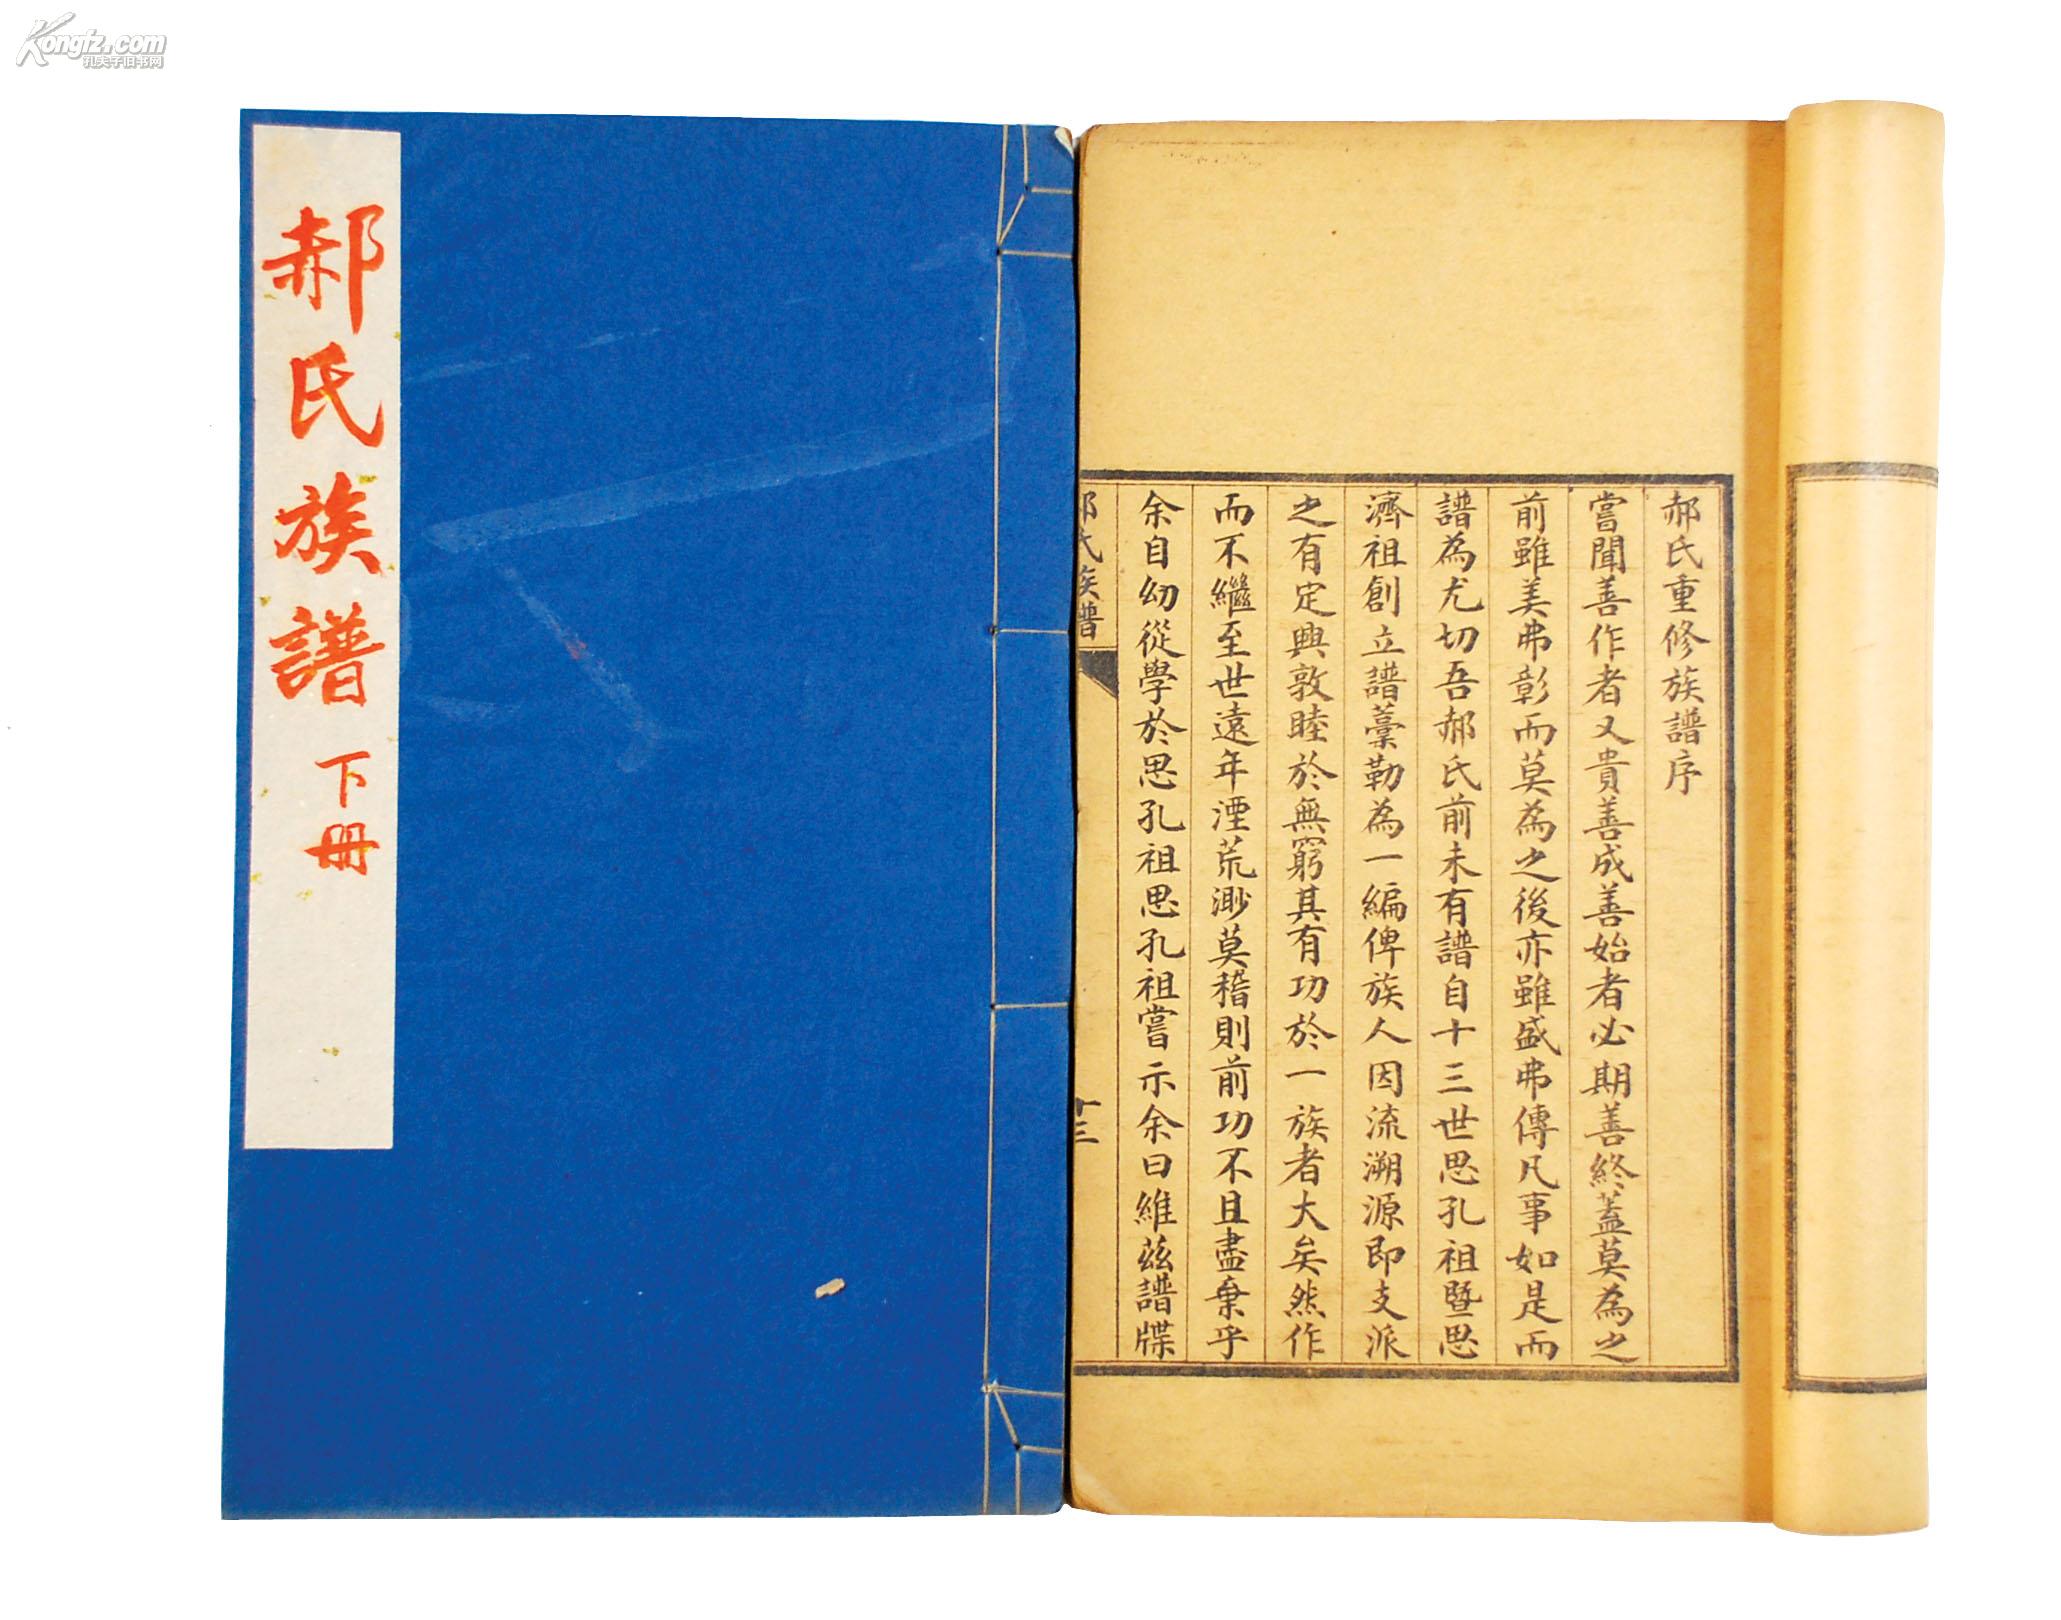 Kongfz.com
孔夫子旧书网
郝氏族譜 下冊
郝氏重修族譜序
嘗聞善作者又貴善成善始者必期善終蓋莫為之
前雖美弗彰而莫為之後亦雖盛弗傳凡事如是而
譜為尤切吾郝氏前未有譜自十三世思孔祖暨思
濟祖創立譜藁勒為一編俾族人因流溯源即支派
之有定興敦睦於無窮其有功於一族者大矣然作
而不繼至世遠年湮荒渺莫稽則前功不且盡棄乎
余自幼從學於思孔祖思孔祖嘗示余曰維茲譜牒
郝氏族譜
十三